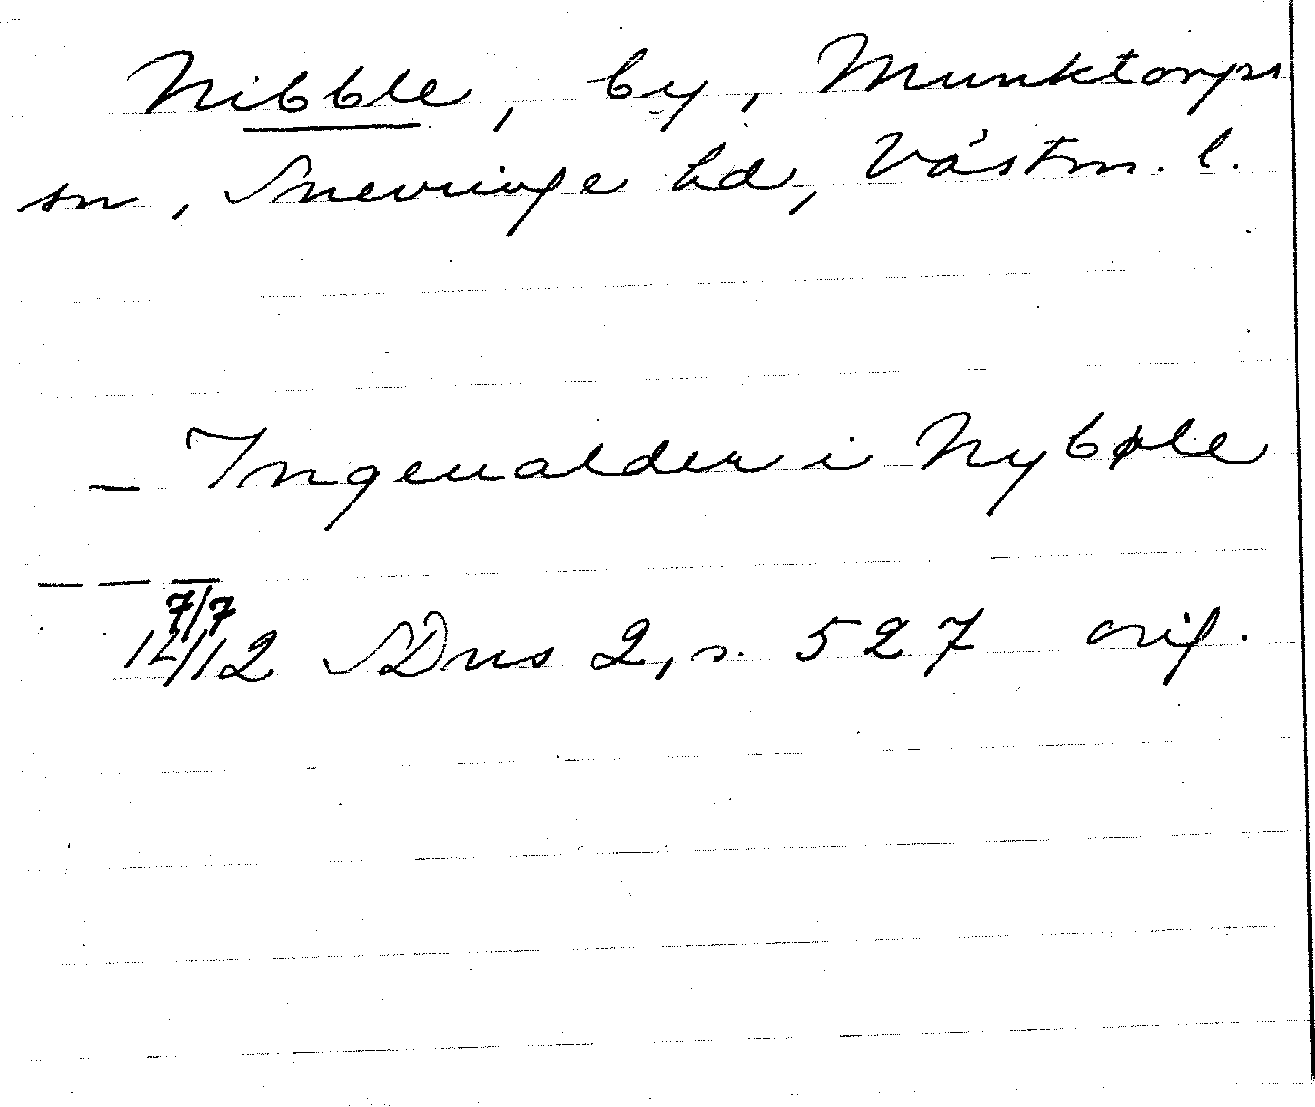 Nibble, by, Munktorps
sn, Snevringe hd, Västm. l.
– Ingeualder i Nybøle
– – –
7/7
12/12 SDns 2, s. 527 orig.